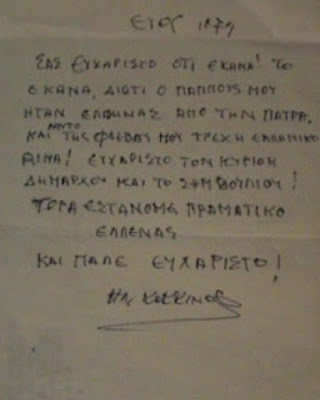 ΕΤΟΣ 1879
ΣΑΣ ΕΥΧΑΡΙΣΤΟ ΟΤΙ ΕΚΑΝΑ! ΤΟ
ΕΚΑΝΑ, ΔΙΟΤΙ Ο ΠΑΠΠΟΥΣ ΜΟΥ
ΗΤΑΝ ΕΛΛΗΝΑΣ ΑΠΟ ΤΗΝ ΠΑΤΡΑ.
ΚΑΙ ΤΗΣ ΦΛΕΒΑΣ ΜΟΥ ΤΡΕΧΗ ΕΛΛΕΝΙΚΟ
ΑΙΜΑ! ΕΥΧΑΡΙΣΤΟ ΤΟΝ ΚΥΡΙΟΝ
ΔΗΜΑΡΧΟΥ ΚΑΙ ΤΟ ΣΥΜΒΟΥΛΙΟΥ!
ΤΟΡΑ ΕΣΤΑΝΟΜΕ ΠΡΑΜΑΤΙΚΟ
ΕΛΛΕΝΑΣ
ΚΑΙ ΠΑΛΕ ΕΥΧΑΡΙΣΤΟ!
ΚΟΚΚΙΝΟΣ